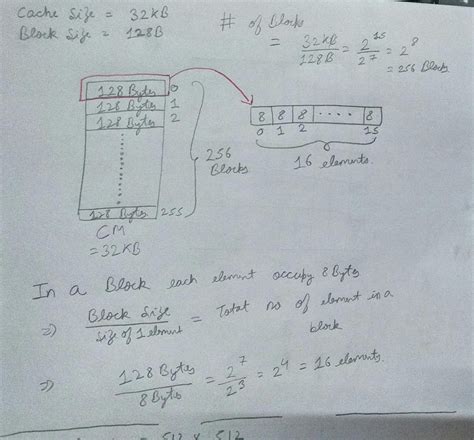 Cache Size = 32KB
Block Size = 128B
# of Blocks
= 32KB/128B = 2^15/2^7 = 2^8
= 256 Blocks
128 Bytes 0
128 Bytes 1
128 Bytes 2
128 Bytes 255
256 Blocks
CM
= 32KB
8 8 8 .... 8
0 1 2 15
16 elements.
In a Block each element occupy 8 Bytes
⇒ Block Size/Size of 1 element = Total no of element in a block
⇒ 128 Bytes/8 Bytes = 2^7/2^3 = 2^4 = 16 elements.
= 512 x 512